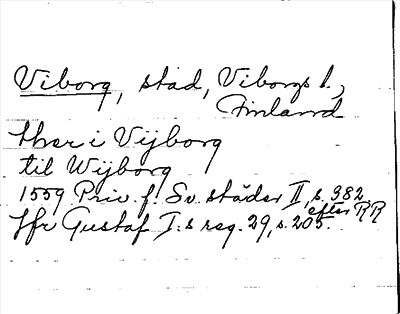 Viborg, stad, Viborgs l.,
Finland
ther i Vijborg
til Wijborg
1559 Priv. f. Sv. städer II, s. 382
efter RR
Jfr Gustaf I:s reg. 29, s. 205.